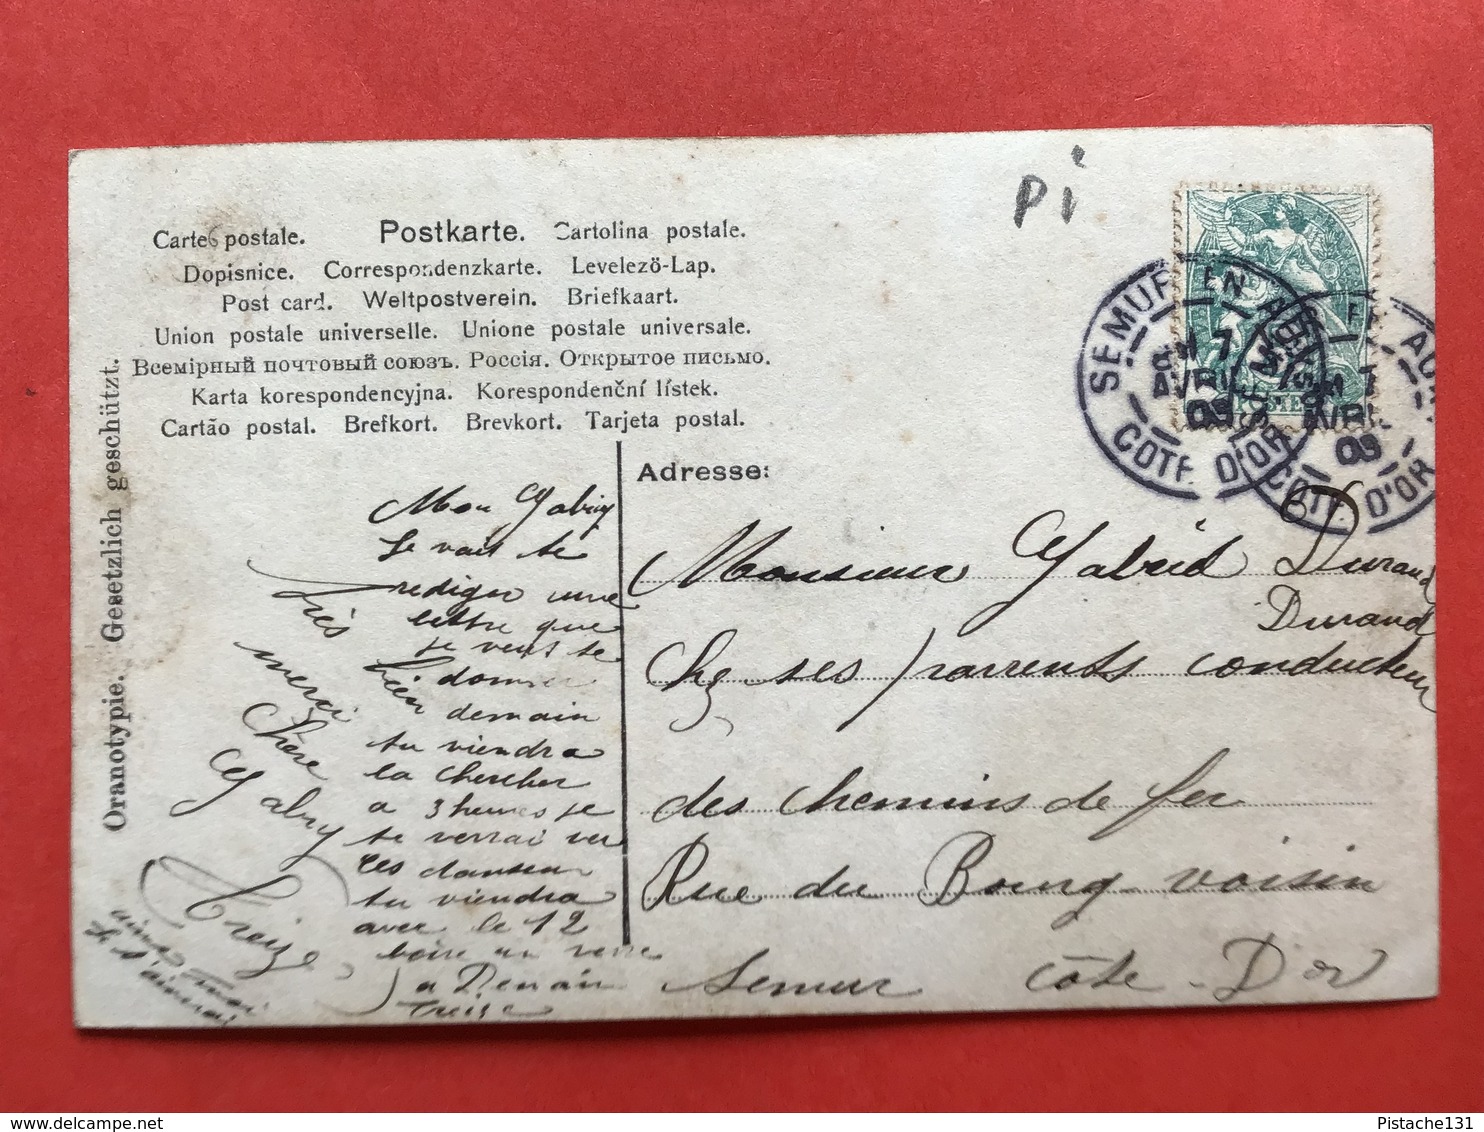 Pi
Carte postale. Postkarte. Cartolina postale.
Dopisnice. Correspondenzkarte. Levelezö-Lap.
Post card. Weltpostverein. Briefkaart.
Union postale universelle. Unione postale universale.
Всемірный почтовый союзъ. Россія. Открытое письмо.
Karta korespondencyjna. Korespondenční lístek.
Cartão postal. Brefkort. Brevkort. Tarjeta postal.
Oranotypie. Gesetzlich geschützt.
SEMUR EN AUXOIS
7
AVRIL
09
COTE D'OR
Adresse:
Monsieur Gabriel Durand
Durand
Chez ses parrents conducteur
des chemins de fer
Rue du Bourg voisin
Semur Côte D'or
Mon Gabriy
Je vais te
rediger une
lettre que
je veux te
donner
demain
tu viendra
la chercher
a 3 heures je
te verrai
tu viendra
avec le 12
boire un verre
a Demain
Treize
Très
bien
merci
Chère
Gabry
Treize
aime moi
Je t'aimerai
Pistache131